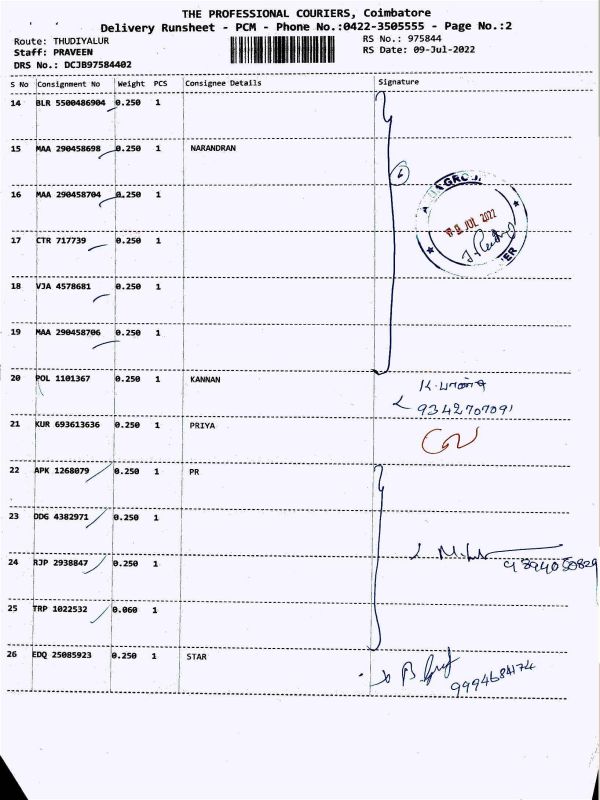 THE PROFESSIONAL COURIERS, Coimbatore
Delivery Runsheet - PCM - Phone No.:0422-3505555 - Page No.:2
Route: THUDIYALUR RS No.: 975844
Staff: PRAVEEN RS Date: 09-Jul-2022
DRS No.: DCJB97584402
S No Consignment No Weight PCS Consignee Details Signature
14 BLR 5500486904 0.250 1
15 MAA 290458698 0.250 1 NARANDRAN
6
16 MAA 290458704 0.250 1
09 JUL 2022
17 CTR 717739 0.250 1
18 VJA 4578681 0.250 1
19 MAA 290458706 0.250 1
20 POL 1101367 0.250 1 KANNAN
9342707091
21 KUR 693613636 0.250 1 PRIYA
22 APK 1268079 0.250 1 PR
23 DDG 4382971 0.250 1
24 RJP 2938847 0.250 1
25 TRP 1022532 0.060 1
26 EDQ 25085923 0.250 1 STAR
9994684174